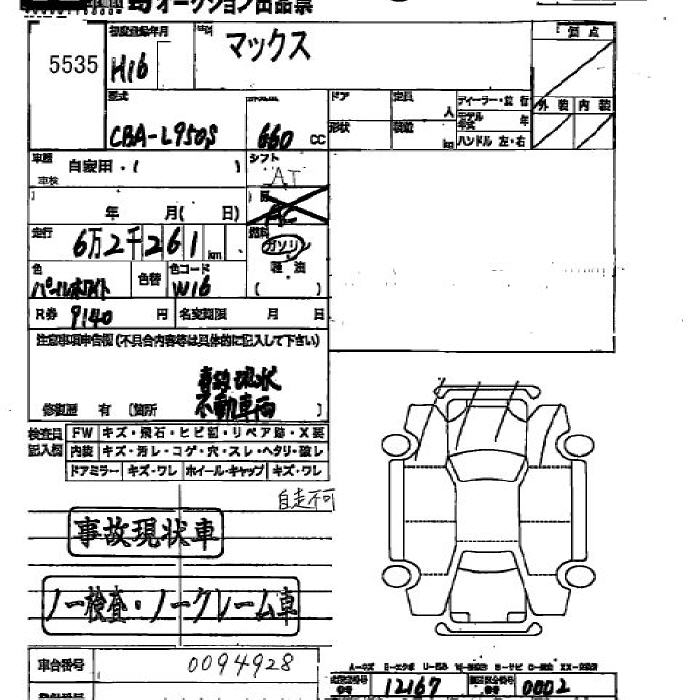 オークション出品票
5535
初度登録年月
H16
マックス
評価点
型式
CBA-L950S
660 cc
ドア
定員
人
ディーラー・並行
モデル年式
年
外装 内装
形状
積載
kg
ハンドル 左・右
車歴 自家用・( )
シフト
AT
車検
年 月( 日)
AC
走行 6万2千261 km
燃料
ガソリン
軽油
( )
色
パールホワイト
色替
色コード
W16
R券 9140 円
名変期限 月 日
注意事項申告欄(不具合内容等は具体的に記入して下さい)
事故現状
不動車両
修復歴 有 〔箇所 〕
検査員記入欄
FW キズ・飛石・ヒビ割・リペア跡・X要
内装 キズ・汚レ・コゲ・穴・スレ・ヘタリ・破レ
ドアミラー キズ・ワレ ホイール・キャップ キズ・ワレ
自走不可
事故現状車
ノー検査・ノークレーム車
車台番号 0094928
12167
0002